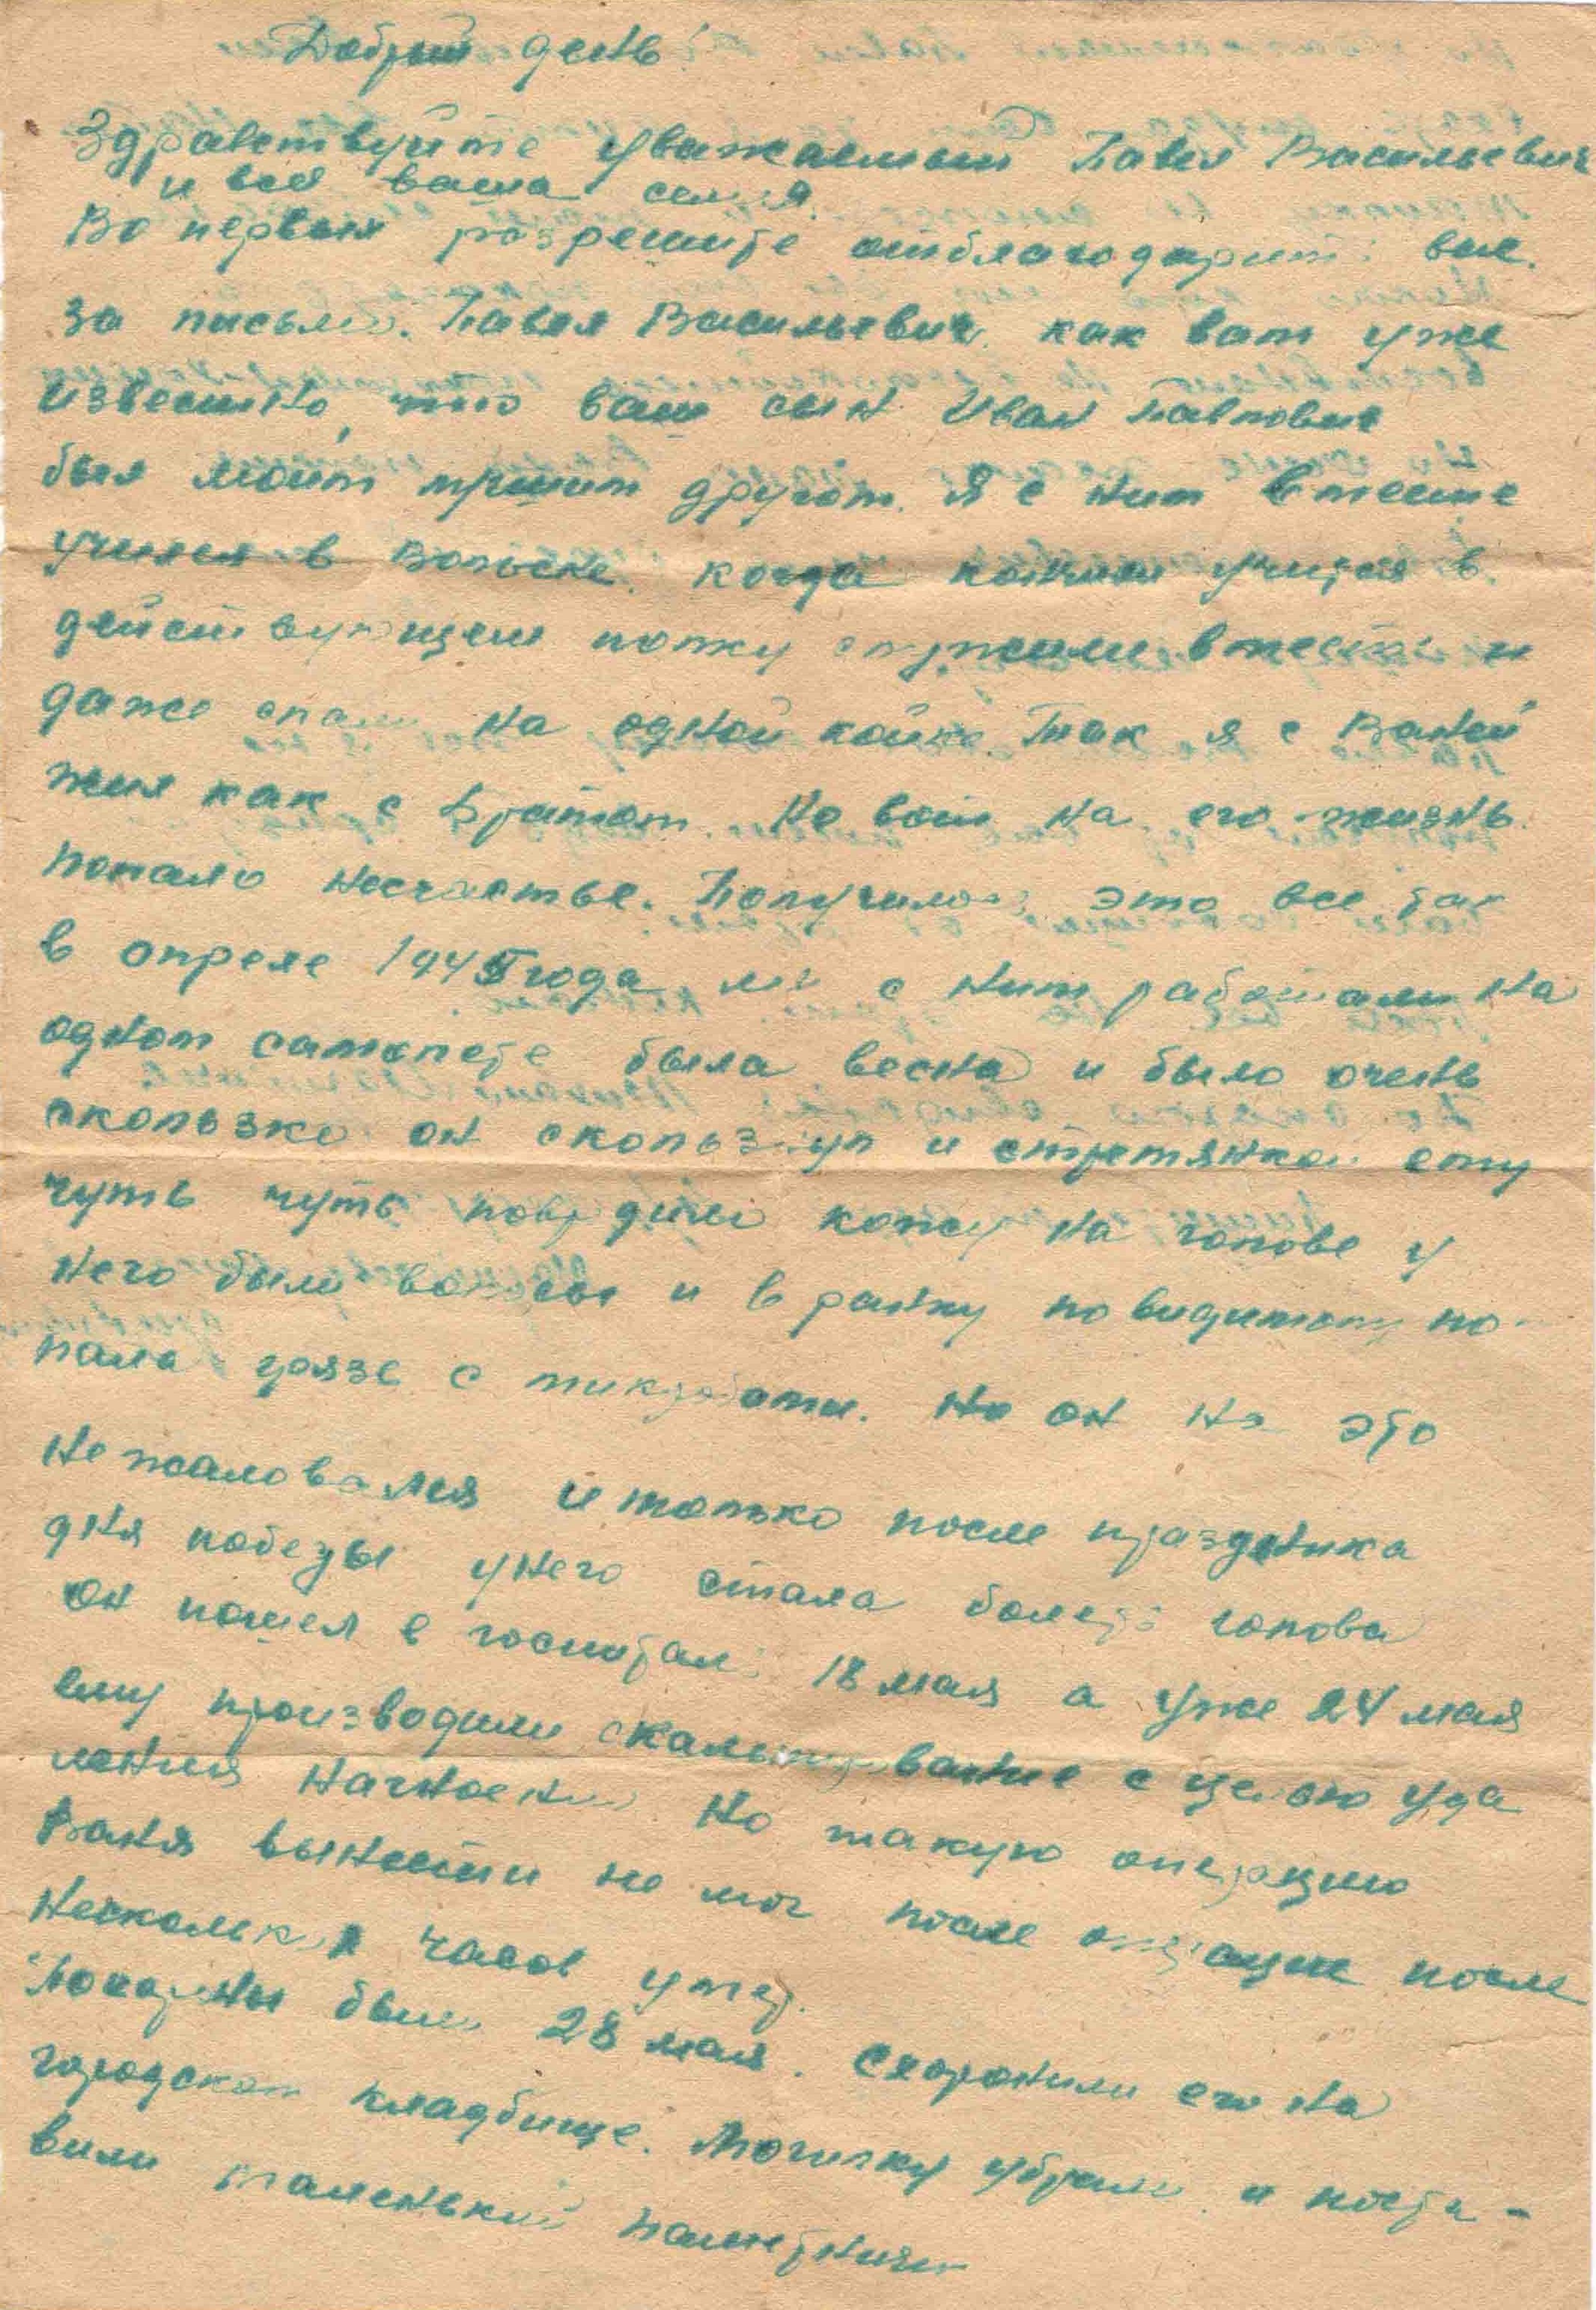 Добрый день!
Здравствуйте уважаемый Павел Васильевич
и вся ваша семья.
Во первых разрешите отблагодарить вас
за письмо. Павел Васильевич как вам уже
известно, что ваш сын Иван Павлович
был моим лучшим другом. Я с ним вместе
учился в Вольске. когда кончили учится в
действующем полку служили вместе и
даже спали на одной койке. Так я с Ваней
жил как с братом. Но вот на его жизнь
попало несчастье. Получилось это все так
в апреле 1945 года мы с ним работали на
одном самолете была весна и было очень
скользко он скользнул и стремянкой ему
чуть чуть повредило кожу на голове у
него были волосы и в ранку по видимому по-
пала грязь с микробами. Но он на это
не жаловался и только после праздника
дня победы у него стала болеть голова
Он пошел в госпиталь 18 мая а уже 24 мая
ему производили скальпирование с целью уда
ления нагноения Но такую операцию
Ваня вынести не мог после операции после
нескольких часов умер.
Похороны были 28 мая. Схоронили его на
городском кладбище. Могилку убрали и поста-
вили маленький памятничек